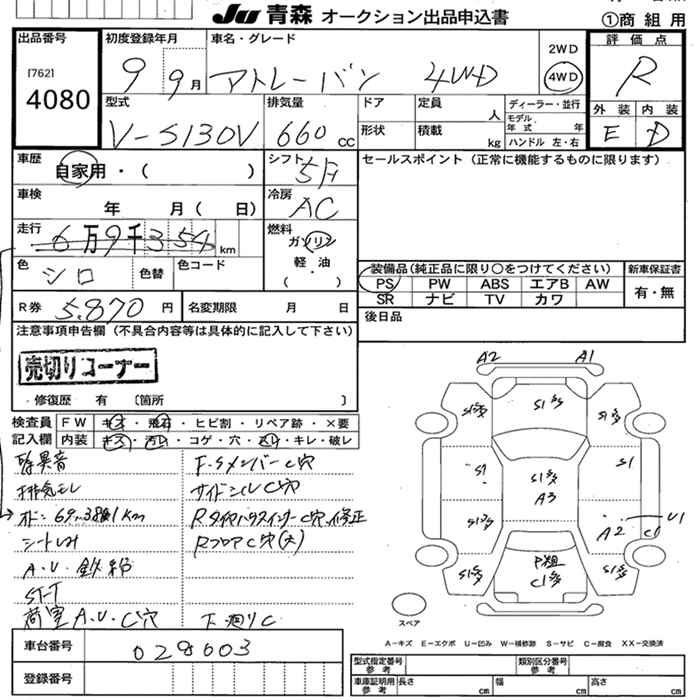 JU 青森 オークション出品申込書
①商 組 用
出品番号
[762]
4080
初度登録年月
9 9月
車名・グレード
アトレーバン 4WD
2WD
4WD
評 価 点
R
外 装 内 装
E D
型式
V-S130V
排気量
660 cc
ドア
形状
定員
人
積載
kg
ディーラー・並行
モデル
年 式 年
ハンドル 左・右
車歴
自家用・( )
シフト
5F
セールスポイント (正常に機能するものに限ります)
車検
年 月( 日)
冷房
AC
走行
6万9千354km
燃料
ガソリン
軽・油
( )
色
シロ
色替
色コード
装備品(純正品に限り○をつけてください)
PS PW ABS エアB AW
SR ナビ TV カワ
新車保証書
有・無
R券 5.870 円
名変期限 月 日
後日品
注意事項申告欄 (不具合内容等は具体的に記入して下さい)
売切りコーナー
・修復歴 有 〔箇所 〕
検査員
記入欄
FW キズ・飛石・ヒビ割・リペア跡・×要
内装 キズ・汚レ・コゲ・穴・スレ・キレ・破レ
異音
排気モレ
シートしみ
A.U.鉄粉
ST-T
荷室A.U.C穴
F.SメンバーC穴
サイドシルC穴
RタイヤハウスインナーC穴、修正
RフロアC穴(大)
下廻りC
A2 A1
S1
A3
S1
A2
U1
C1
スペア
A-キズ E-エクボ U-凹み W-補修跡 S-サビ C-腐食 XX-交換済
車台番号
028603
登録番号
型式指定番号
参考
類別区分番号
参考
車庫証明用
参考
長さ cm
幅 cm
高さ cm